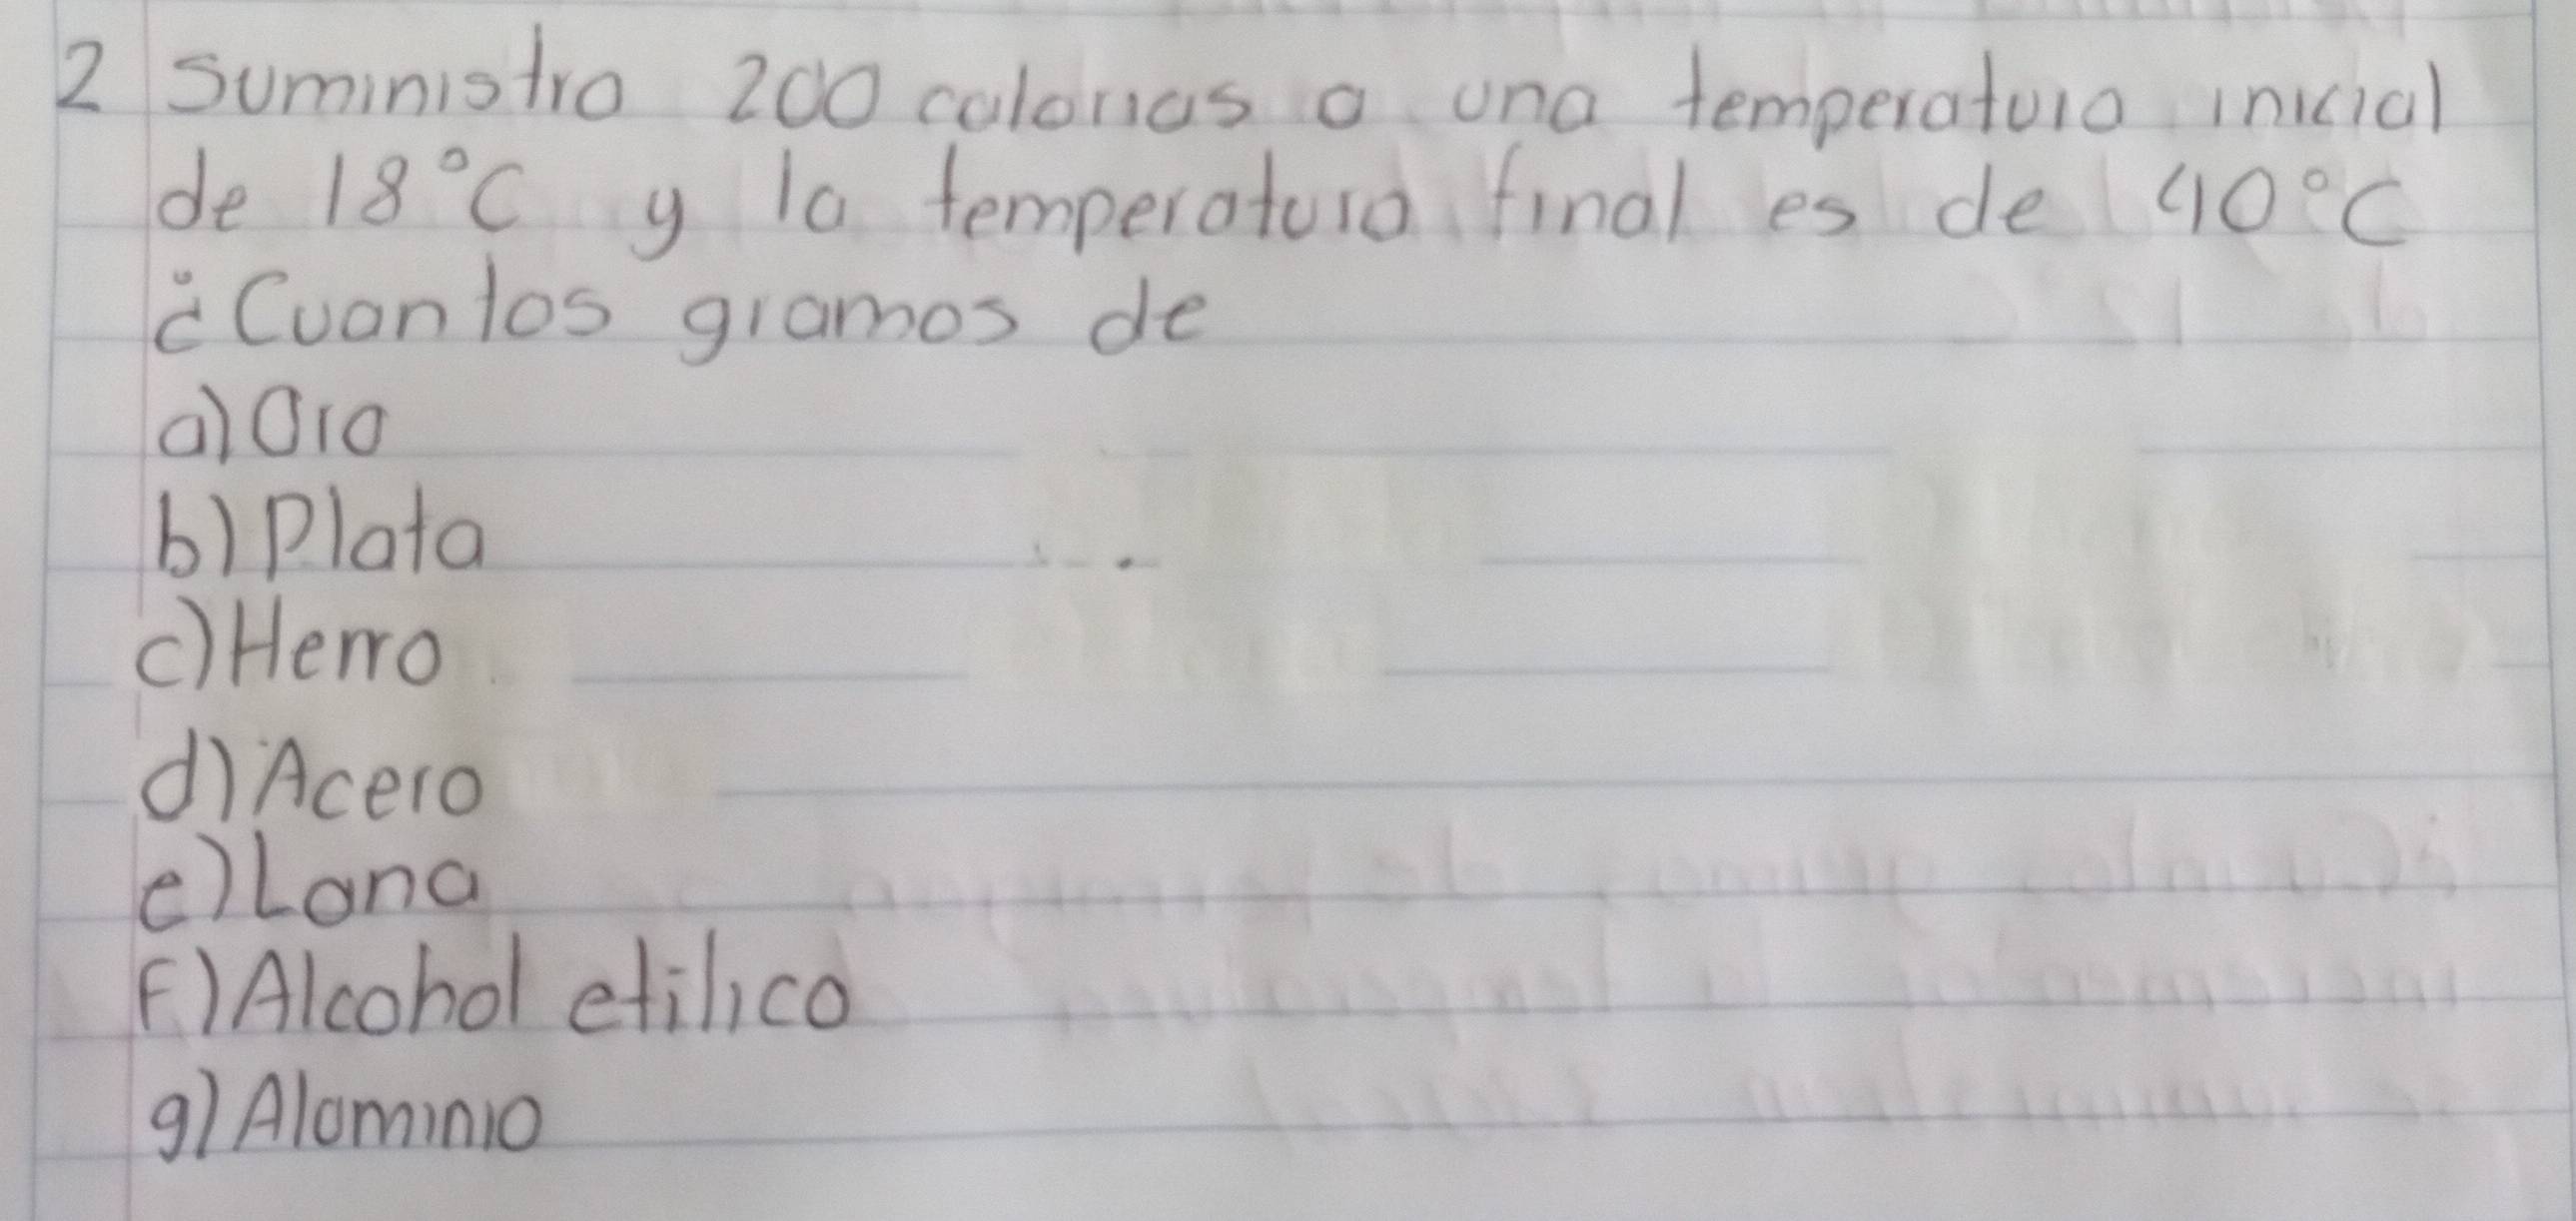 2 Suministro 200 calorias a una temperatura inicial
de 18°C y la temperatura final es de 40°C
¿Cuantos gramos de
a) Oro
b) Plata
c) Herro
d) Acero
e) Lana
F) Alcohol etilico
g) Alominio